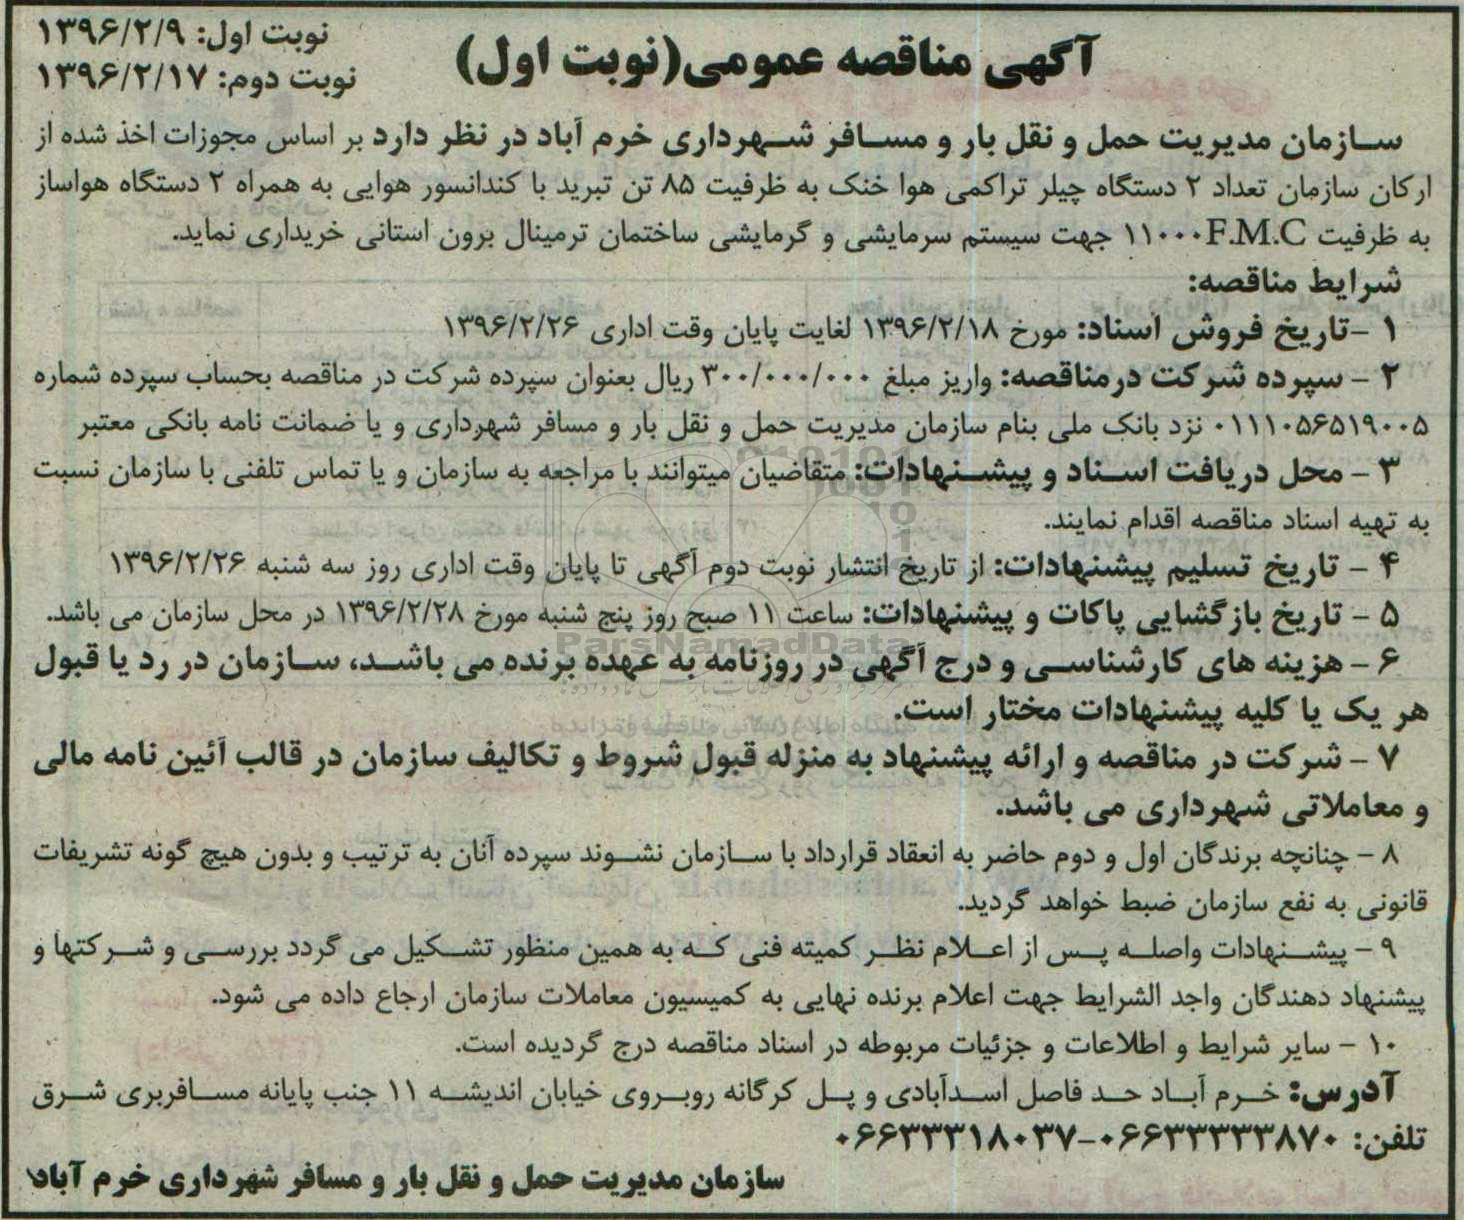 آگهی مناقصه عمومی(نوبت اول)
نوبت اول: ۱۳۹۶/۲/۹
نوبت دوم: ۱۳۹۶/۲/۱۷
سازمان مدیریت حمل و نقل بار و مسافر شهرداری خرم آباد در نظر دارد بر اساس مجوزات اخذ شده از
ارکان سازمان تعداد ۲ دستگاه چیلر تراکمی هوا خنک به ظرفیت ۸۵ تن تبرید با کندانسور هوایی به همراه ۲ دستگاه هواساز
به ظرفیت ۱۱۰۰۰F.M.C جهت سیستم سرمایشی و گرمایشی ساختمان ترمینال برون استانی خریداری نماید.
شرایط مناقصه:
۱ -تاریخ فروش اسناد: مورخ ۱۳۹۶/۲/۱۸ لغایت پایان وقت اداری ۱۳۹۶/۲/۲۶
۲ - سپرده شرکت درمناقصه: واریز مبلغ ۳۰۰/۰۰۰/۰۰۰ ریال بعنوان سپرده شرکت در مناقصه بحساب سپرده شماره
۰۱۱۱۰۵۶۵۱۹۰۰۵ نزد بانک ملی بنام سازمان مدیریت حمل و نقل بار و مسافر شهرداری و یا ضمانت نامه بانکی معتبر
۳ - محل دریافت اسناد و پیشنهادات: متقاضیان میتوانند با مراجعه به سازمان و یا تماس تلفنی با سازمان نسبت
به تهیه اسناد مناقصه اقدام نمایند.
۴ - تاریخ تسلیم پیشنهادات: از تاریخ انتشار نوبت دوم آگهی تا پایان وقت اداری روز سه شنبه ۱۳۹۶/۲/۲۶
۵ - تاریخ بازگشایی پاکات و پیشنهادات: ساعت ۱۱ صبح روز پنج شنبه مورخ ۱۳۹۶/۲/۲۸ در محل سازمان می باشد.
ParsNamadData
۶ - هزینه های کارشناسی و درج آگهی در روزنامه به عهده برنده می باشد، سازمان در رد یا قبول
هر یک یا کلیه پیشنهادات مختار است.
۷ - شرکت در مناقصه و ارائه پیشنهاد به منزله قبول شروط و تکالیف سازمان در قالب آئین نامه مالی
و معاملاتی شهرداری می باشد.
۸ - چنانچه برندگان اول و دوم حاضر به انعقاد قرارداد با سازمان نشوند سپرده آنان به ترتیب و بدون هیچ گونه تشریفات
قانونی به نفع سازمان ضبط خواهد گردید.
۹ - پیشنهادات واصله پس از اعلام نظر کمیته فنی که به همین منظور تشکیل می گردد بررسی و شرکتها و
پیشنهاد دهندگان واجد الشرایط جهت اعلام برنده نهایی به کمیسیون معاملات سازمان ارجاع داده می شود.
۱۰ - سایر شرایط و اطلاعات و جزئیات مربوطه در اسناد مناقصه درج گردیده است.
آدرس: خرم آباد حد فاصل اسدآبادی و پل کرگانه روبروی خیابان اندیشه ۱۱ جنب پایانه مسافربری شرق
تلفن: ۰۶۶۳۳۳۳۳۸۷۰-۰۶۶۳۳۳۱۸۰۳۷
سازمان مدیریت حمل و نقل بار و مسافر شهرداری خرم آباد